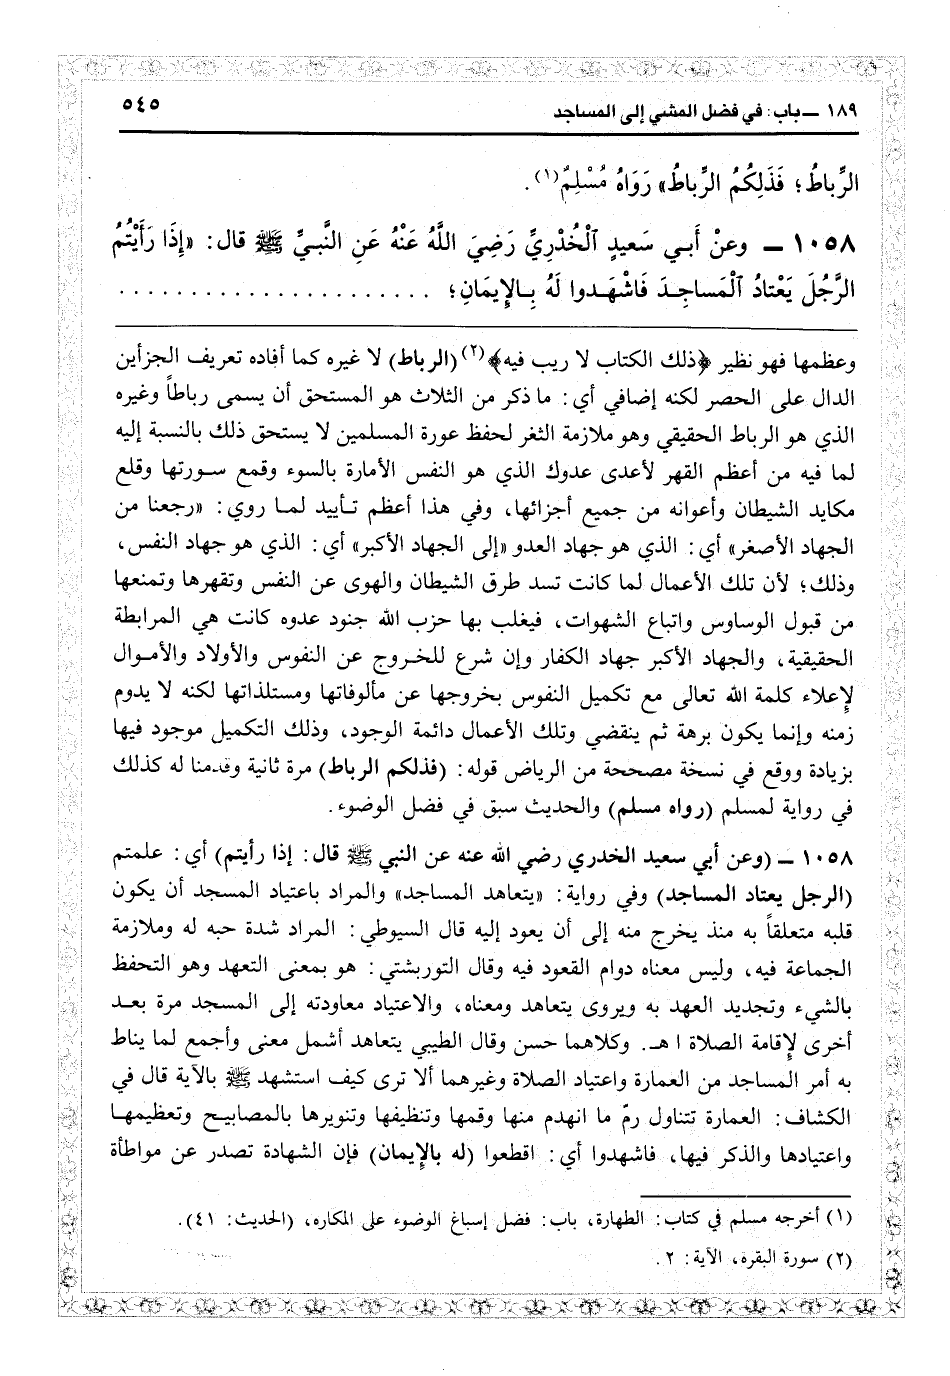 ١٨٩ ــ باب: في فضل المشي إلى المساجد
٥٤٥
الرِّباطُ؛ فَذَلِكُمُ الرِّباطُ» رَوَاهُ مُسْلِمٌ(١).
١٠٥٨ ــ وعنْ أَبي سَعيدٍ ٱلْخُدْرِيِّ رَضِيَ اللَّهُ عَنْهُ عَنِ النَّبيِّ ﷺ قال: «إِذَا رَأَيْتُمُ
الرَّجُلَ يَعْتادُ ٱلْمَساجِدَ فَاشْهَدوا لَهُ بِالإِيمَانِ؛ . . . . . . . . . . . . . . . . . . . . . .
وعظمها فهو نظير ﴿ذلك الكتاب لا ريب فيه﴾(٢) (الرباط) لا غيره كما أفاده تعريف الجزأين
الدال على الحصر لكنه إضافي أي: ما ذكر من الثلاث هو المستحق أن يسمى رباطاً وغيره
الذي هو الرباط الحقيقي وهو ملازمة الثغر لحفظ عورة المسلمين لا يستحق ذلك بالنسبة إليه
لما فيه من أعظم القهر لأعدى عدوك الذي هو النفس الأمارة بالسوء وقمع سورتها وقلع
مكايد الشيطان وأعوانه من جميع أجزائها، وفي هذا أعظم تأييد لما روي: «رجعنا من
الجهاد الأصغر» أي: الذي هو جهاد العدو «إلى الجهاد الأكبر» أي: الذي هو جهاد النفس،
وذلك؛ لأن تلك الأعمال لما كانت تسد طرق الشيطان والهوى عن النفس وتقهرها وتمنعها
من قبول الوساوس واتباع الشهوات، فيغلب بها حزب الله جنود عدوه كانت هي المرابطة
الحقيقية، والجهاد الأكبر جهاد الكفار وإن شرع للخروج عن النفوس والأولاد والأموال
لإعلاء كلمة الله تعالى مع تكميل النفوس بخروجها عن مألوفاتها ومستلذاتها لكنه لا يدوم
زمنه وإنما يكون برهة ثم ينقضي وتلك الأعمال دائمة الوجود، وذلك التكميل موجود فيها
بزيادة ووقع في نسخة مصححة من الرياض قوله: (فذلكم الرباط) مرة ثانية وقدمنا له كذلك
في رواية لمسلم (رواه مسلم) والحديث سبق في فضل الوضوء.
١٠٥٨ ــ (وعن أبي سعيد الخدري رضي الله عنه عن النبي ﷺ قال: إذا رأيتم) أي: علمتم
(الرجل يعتاد المساجد) وفي رواية: «يتعاهد المساجد» والمراد باعتياد المسجد أن يكون
قلبه متعلقاً به منذ يخرج منه إلى أن يعود إليه قال السيوطي: المراد شدة حبه له وملازمة
الجماعة فيه، وليس معناه دوام القعود فيه وقال التوربشتي: هو بمعنى التعهد وهو التحفظ
بالشيء وتجديد العهد به ويروى يتعاهد ومعناه، والاعتياد معاودته إلى المسجد مرة بعد
أخرى لإقامة الصلاة ا هـ. وكلاهما حسن وقال الطيبي يتعاهد أشمل معنى وأجمع لما يناط
به أمر المساجد من العمارة واعتياد الصلاة وغيرهما ألا ترى كيف استشهد ﷺ بالآية قال في
الكشاف: العمارة تتناول رمّ ما انهدم منها وقمها وتنظيفها وتنويرها بالمصابيح وتعظيمها
واعتيادها والذكر فيها، فاشهدوا أي: اقطعوا (له بالإيمان) فإن الشهادة تصدر عن مواطأة
(١) أخرجه مسلم في كتاب: الطهارة، باب: فضل إسباغ الوضوء على المكاره، (الحديث: ٤١).
(٢) سورة البقرة، الآية: ٢.